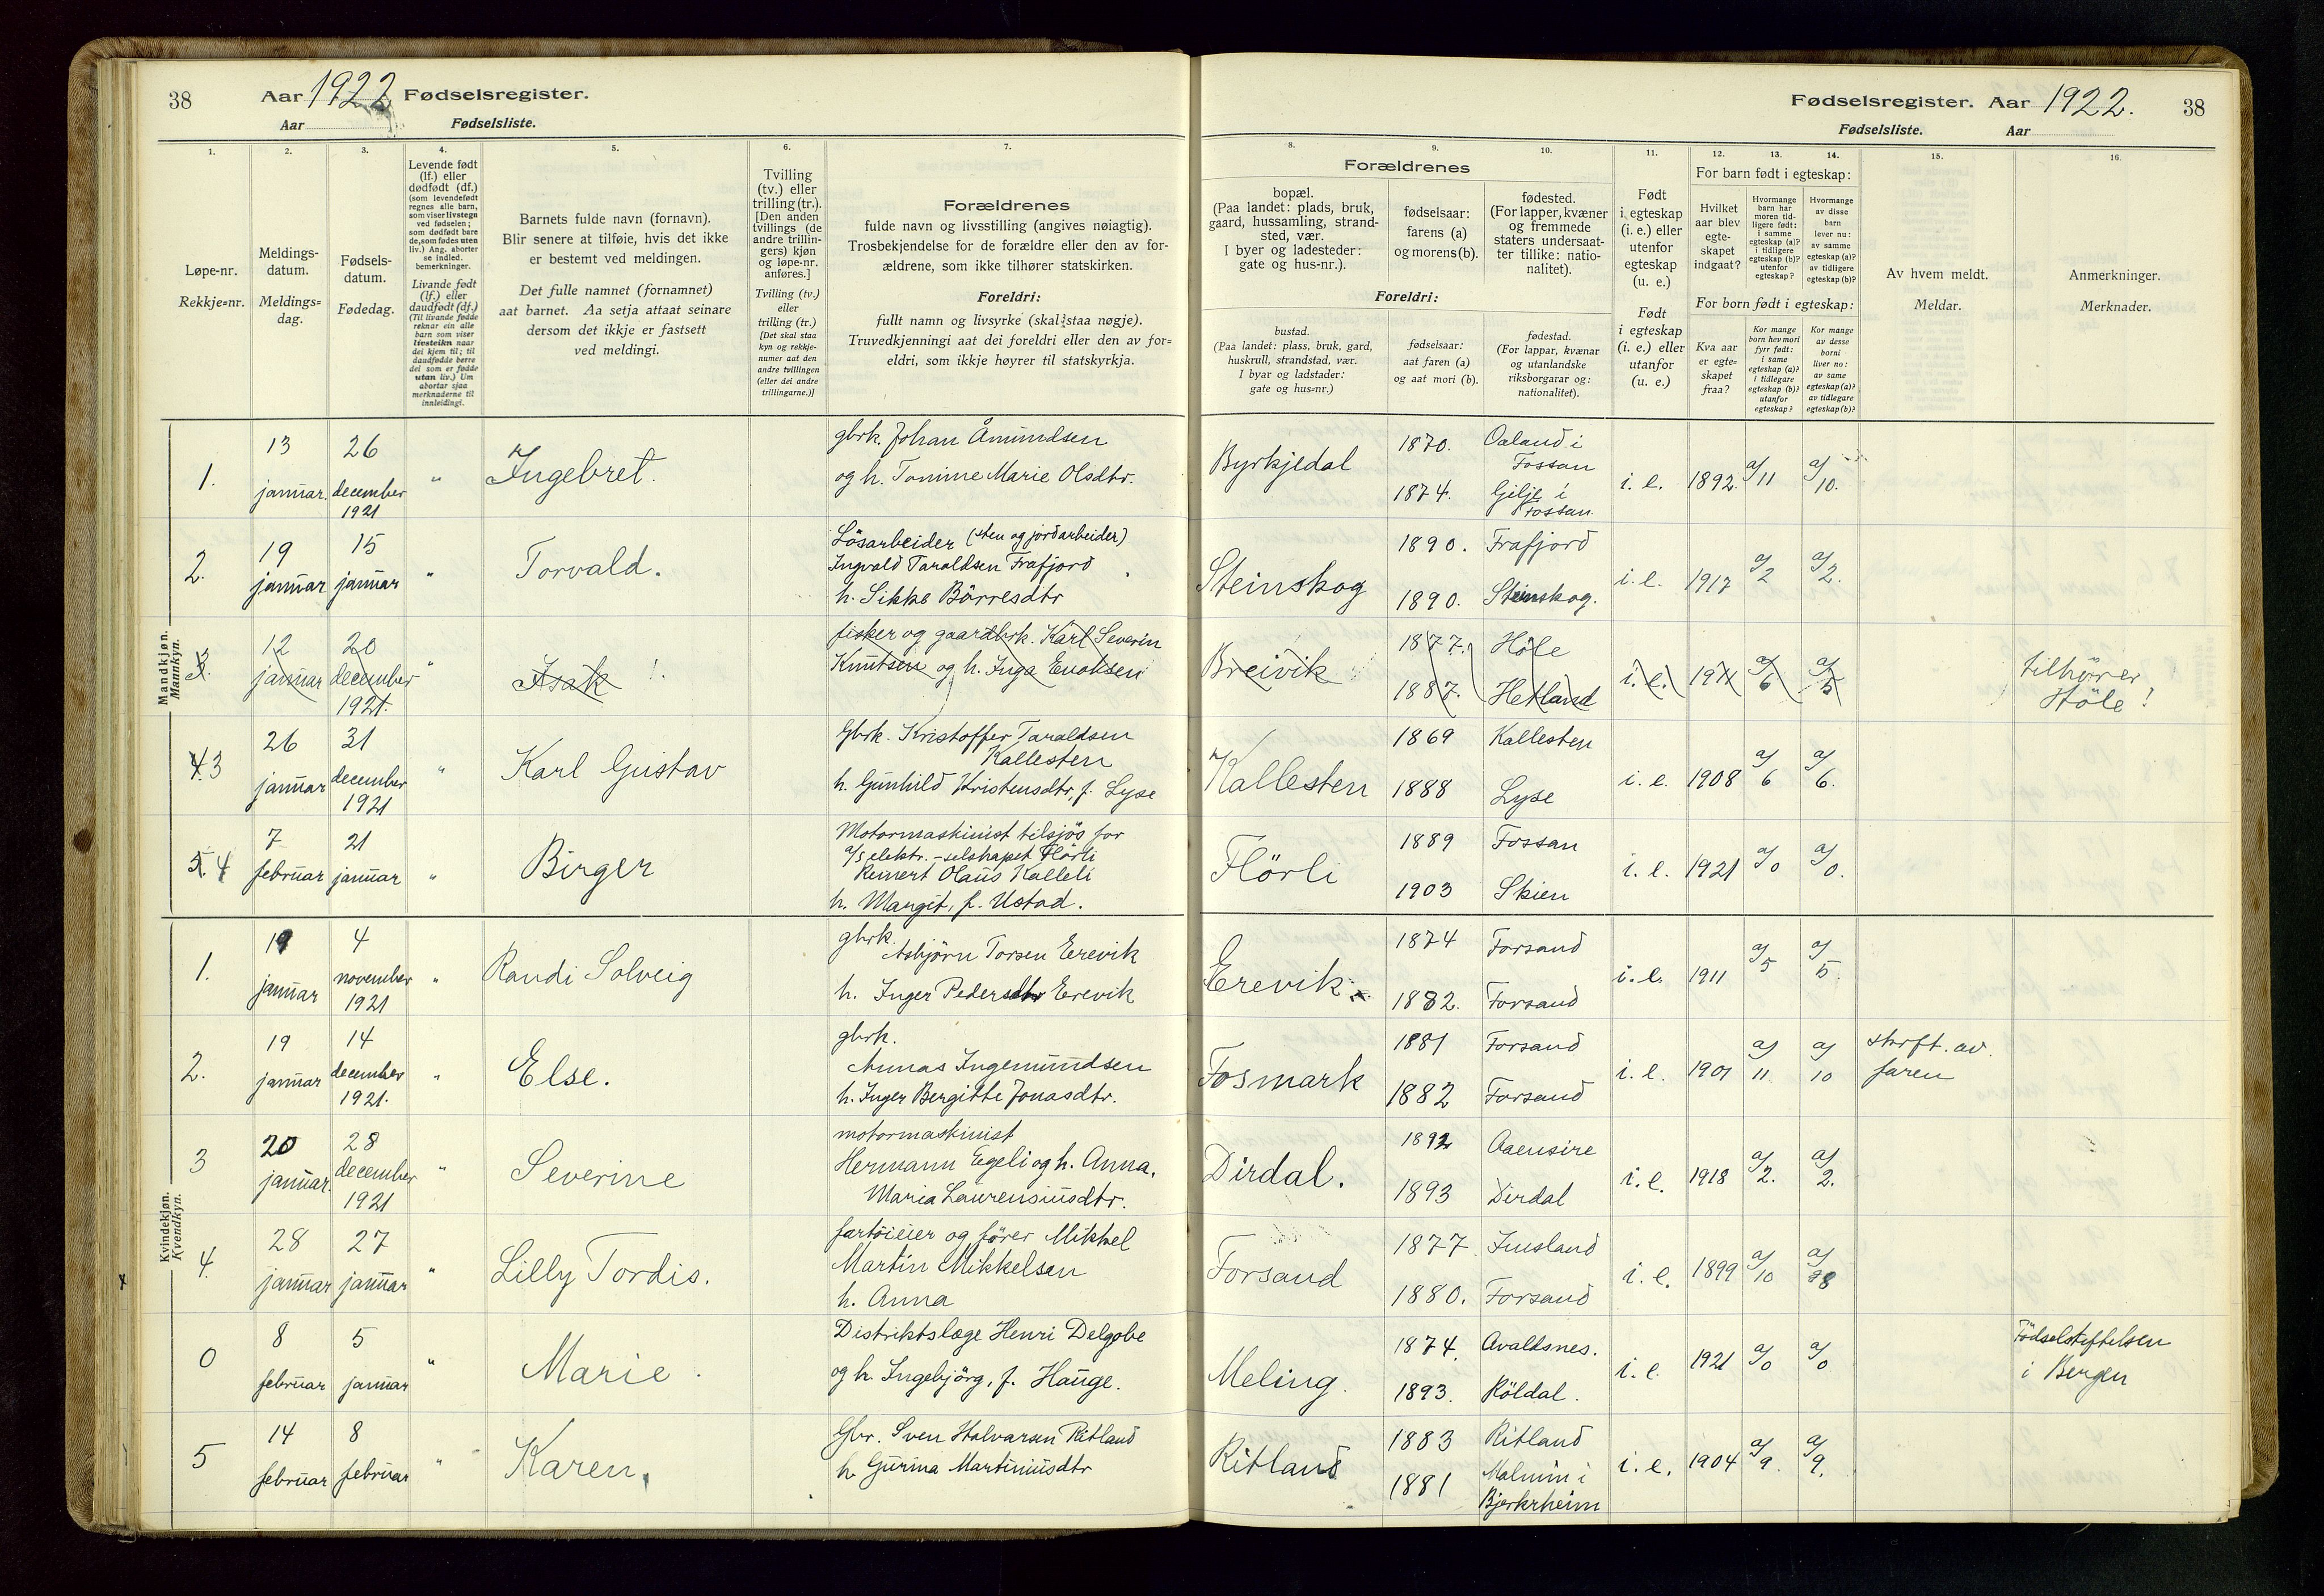 38 Aar 1922 Fødselsregister.
Aar Fødselsliste.
1. 2. 3. 4. 5. 6. 7.
Løpe-nr.
Rekkje=nr.
Meldings-
datum.
Meldings=
dag.
Fødsels-
datum.
Fødedag.
Levende født
(lf.) eller
dødfødt (df.)
(som levendefødt
regnes alle barn,
som viser livstegn
ved fødselen;
som dødfødt bare
de, som fødes uten
liv.) Ang. aborter
se indled.
bemerkninger.
Livande født
(lf.) eller
daudfødt (df.)
(Til livande fødde
reknar ein alle
barn som viser
livsteikn naar
dei kjem til; til
daudfødde berre
dei som er fødde
utan liv.) Um
abortar sjaa
merknaderne til
innleidingi.
Barnets fulde navn (fornavn).
Blir senere at tilføie, hvis det ikke
er bestemt ved meldingen.
Det fulle namnet (fornamnet)
aat barnet. Aa setja attaat seinare
dersom det ikkje er fastsett
ved meldingi.
Tvilling
(tv.) eller
trilling (tr.).
[Den anden
tvillings (de
andre trillin-
gers) kjøn
og løpe-nr.
anføres.]
Tvilling (tv.)
eller
trilling (tr.)
[Det skal staa
kyn og rekkje-
numer aat den
andre tvillingen
(eller dei andre
trillingarne.)]
Forældrenes
fulde navn og livsstilling (angives nøiagtig).
Trosbekjendelse for de forældre eller den av for-
ældrene, som ikke tilhører statskirken.
Foreldri:
fullt namn og livsyrke (skal staa nøgje).
Truvedkjenningi aat dei foreldri eller den av for=
eldri, som ikkje høyrer til statskyrkja.
Mandkjøn.
Mannkyn.
1. 13 januar. 26 december 1921 " Ingebret.
gbrk. Johan Åmundsen
og h. Tomine Marie Olsdtr.
2. 19 januar 15 januar " Torvald.
Lösarbeider (sten og jordarbeider)
Ingvald Taraldsen Frafjord
h. Sikke Börresdtr
3. 12 januar 20 december 1921. " Isak !
fisker og gaardbrk. Karl Severin
Knutsen og h. Inga Enoksen
4. 3 26 januar 31 december 1921 " Karl Gustav
Gbrk. Kristoffer Taraldsen
Kallesten
h. Gunhild Kristensdtr, f. Lyse
5. 4 7 februar 21 januar " Birger
Motormaskinist tilsjös for
a/s elektr.-selskapet Flörli
Reinert Olaus Kalleli
h. Margit, f. Ustad.
Kvindekjøn.
Kvendkyn.
1. 19 januar 4 november 1921 " Randi Solveig
gbrk.
Asbjörn Torsen Erevik
h. Inger Pedersdtr Erevik
2. 19 januar 14 december 1921. " Else.
gbrk.
Aunas Ingemundsen
h. Inger Bergitte Jonasdtr.
3 20 januar. 28 december 1921 " Severine
motormaskinist
Hermann Egeli og h. Anna,
Maria Laurensiusdtr.
4. 28 januar 27 januar " Lilly Tordis.
fartöieier og förer Mikkel
Martin Mikkelsen
h. Anna
0 8 februar 5 januar " Marie.
Distriktslæge Henri Delgobe
og h. Ingebjörg, f. Hauge.
5 14 februar 8 februar " Karen.
Gbr. Sven Halvarsen Ritland
h Gurina Martiniusdtr
Fødselsregister. Aar 1922. 38
Fødselsliste. Aar
8. 9. 10. 11. 12. 13. 14. 15. 16.
Forældrenes
bopæl.
(Paa landet: plads, bruk,
gaard, hussamling, strand-
sted, vær.
I byer og ladesteder:
gate og hus-nr.).
fødselsaar:
farens (a)
og morens (b).
fødested.
(For lapper, kvæner
og fremmede
staters undersaat-
ter tillike: natio-
nalitet).
Foreldri:
bustad.
(Paa landet: plass, bruk, gard,
huskrull, strandstad, vær.
I byar og ladstader:
gate og hus=nr.)
fødselsaar:
aat faren (a)
og aat mori (b).
fødestad.
(For lappar, kvænar
og utanlandske
riksborgarar og:
nationalitet).
Født
i egteskap
(i. e.) eller
utenfor
egteskap
(u. e.)
Født
i egteskap
(i. e.) eller
utanfor
(u. e.)
For barn født i egteskap:
Hvilket
aar blev
egte-
skapet
indgaat?
Hvormange
barn har
moren tid-
ligere født:
i samme
egteskap (a)?
i tidligere
egteskap (b)?
utenfor
egteskap?
Hvormange
av disse
barn
lever nu:
av samme
egteskap (a)?
av tidligere
egteskap (b)?
For born født i egteskap:
Kva aar
er egte=
skapet
fraa?
Kor mange
born hev mori
fyrr født:
i same
egteskap (a)?
i tidlegare
egteskap (b)?
utanfor
egteskap?
Kor mange
av desse
borni
liver no:
av same
egteskap (a)?
av tidlegare
egteskap (b)?
Av hvem meldt.
Meldar.
Anmerkninger.
Merknader.
Byrkjedal 1870. Oaland i Fossan
1874. Gilje i Fossan i. e. 1892 a/11 a/10.
Steinskog 1890. Frafjord
1890. Steinskog. i. e. 1917 a/2 a/2.
Breivik 1877. Höle
1887. Hetland i. e. a/6 a/5 tilhörer Höle!
Kallesten 1869 Kallesten
1888 Lyse i. e. 1908 a/6 a/6.
Flörli 1889 Fossan
1903 Skien i. e. 1921 a/0 a/0.
Erevik 1874 Forsand
1882. Forsand i. e. 1911 a/5 a/5.
Fosmark 1881 Forsand
1882 Forsand i. e. 1901 a/11. a/10 skrft. av. faren
Dirdal. 1892 Aaensire
1893 Dirdal i. e. 1918 a/2. a/2.
Forsand 1877. Imsland
1880. Forsand i. e. 1899 a/10 a/8
Meling. 1874. Avaldsnes.
1893. Röldal. i. e. 1921 a/0 a/0 Födselstiftelsen i Bergen
Ritland 1883 Ritland
1881 Malmin i Bjerkrheim i. e. 1904 a/9. a/9.